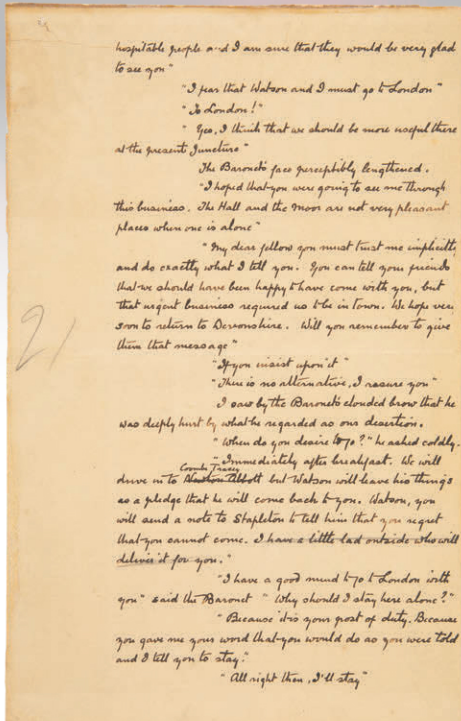 hospitable people and I am sure that they would be very glad
to see you"
"I fear that Watson and I must go to London"
"To London!"
"Yes, I think that we should be more useful there
at the present juncture"
The Baronets face perceptibly lengthened.
"I hoped that you were going to see me through
this business. The Hall and the moor are not very pleasant
places when one is alone"
"My dear fellow you must trust me implicitly
and do exactly what I tell you. You can tell your friends
that we should have been happy to have come with you, but
that urgent business required us to be in town. We hope very
soon to return to Devonshire. Will you remember to give
them that message"
"If you insist upon it"
"There is no alternative, I assure you"
I saw by the Baronets clouded brow that he
was deeply hurt by what he regarded as our desertion.
"When do you desire to go?" he asked coldly.
"Immediately after breakfast. We will
Coombe Tracey
drive in to Abbott but Watson will leave his things
as a pledge that he will come back to you. Watson, you
will send a note to Stapleton to tell him that you regret
that you cannot come. I have a little lad outside who will
deliver it for you."
"I have a good mind to go to London with
you" said the Baronet "Why should I stay here alone?"
"Because it is your post of duty. Because
you gave me your word that you would do as you were told
and I tell you to stay."
"All right then, I'll stay"
21